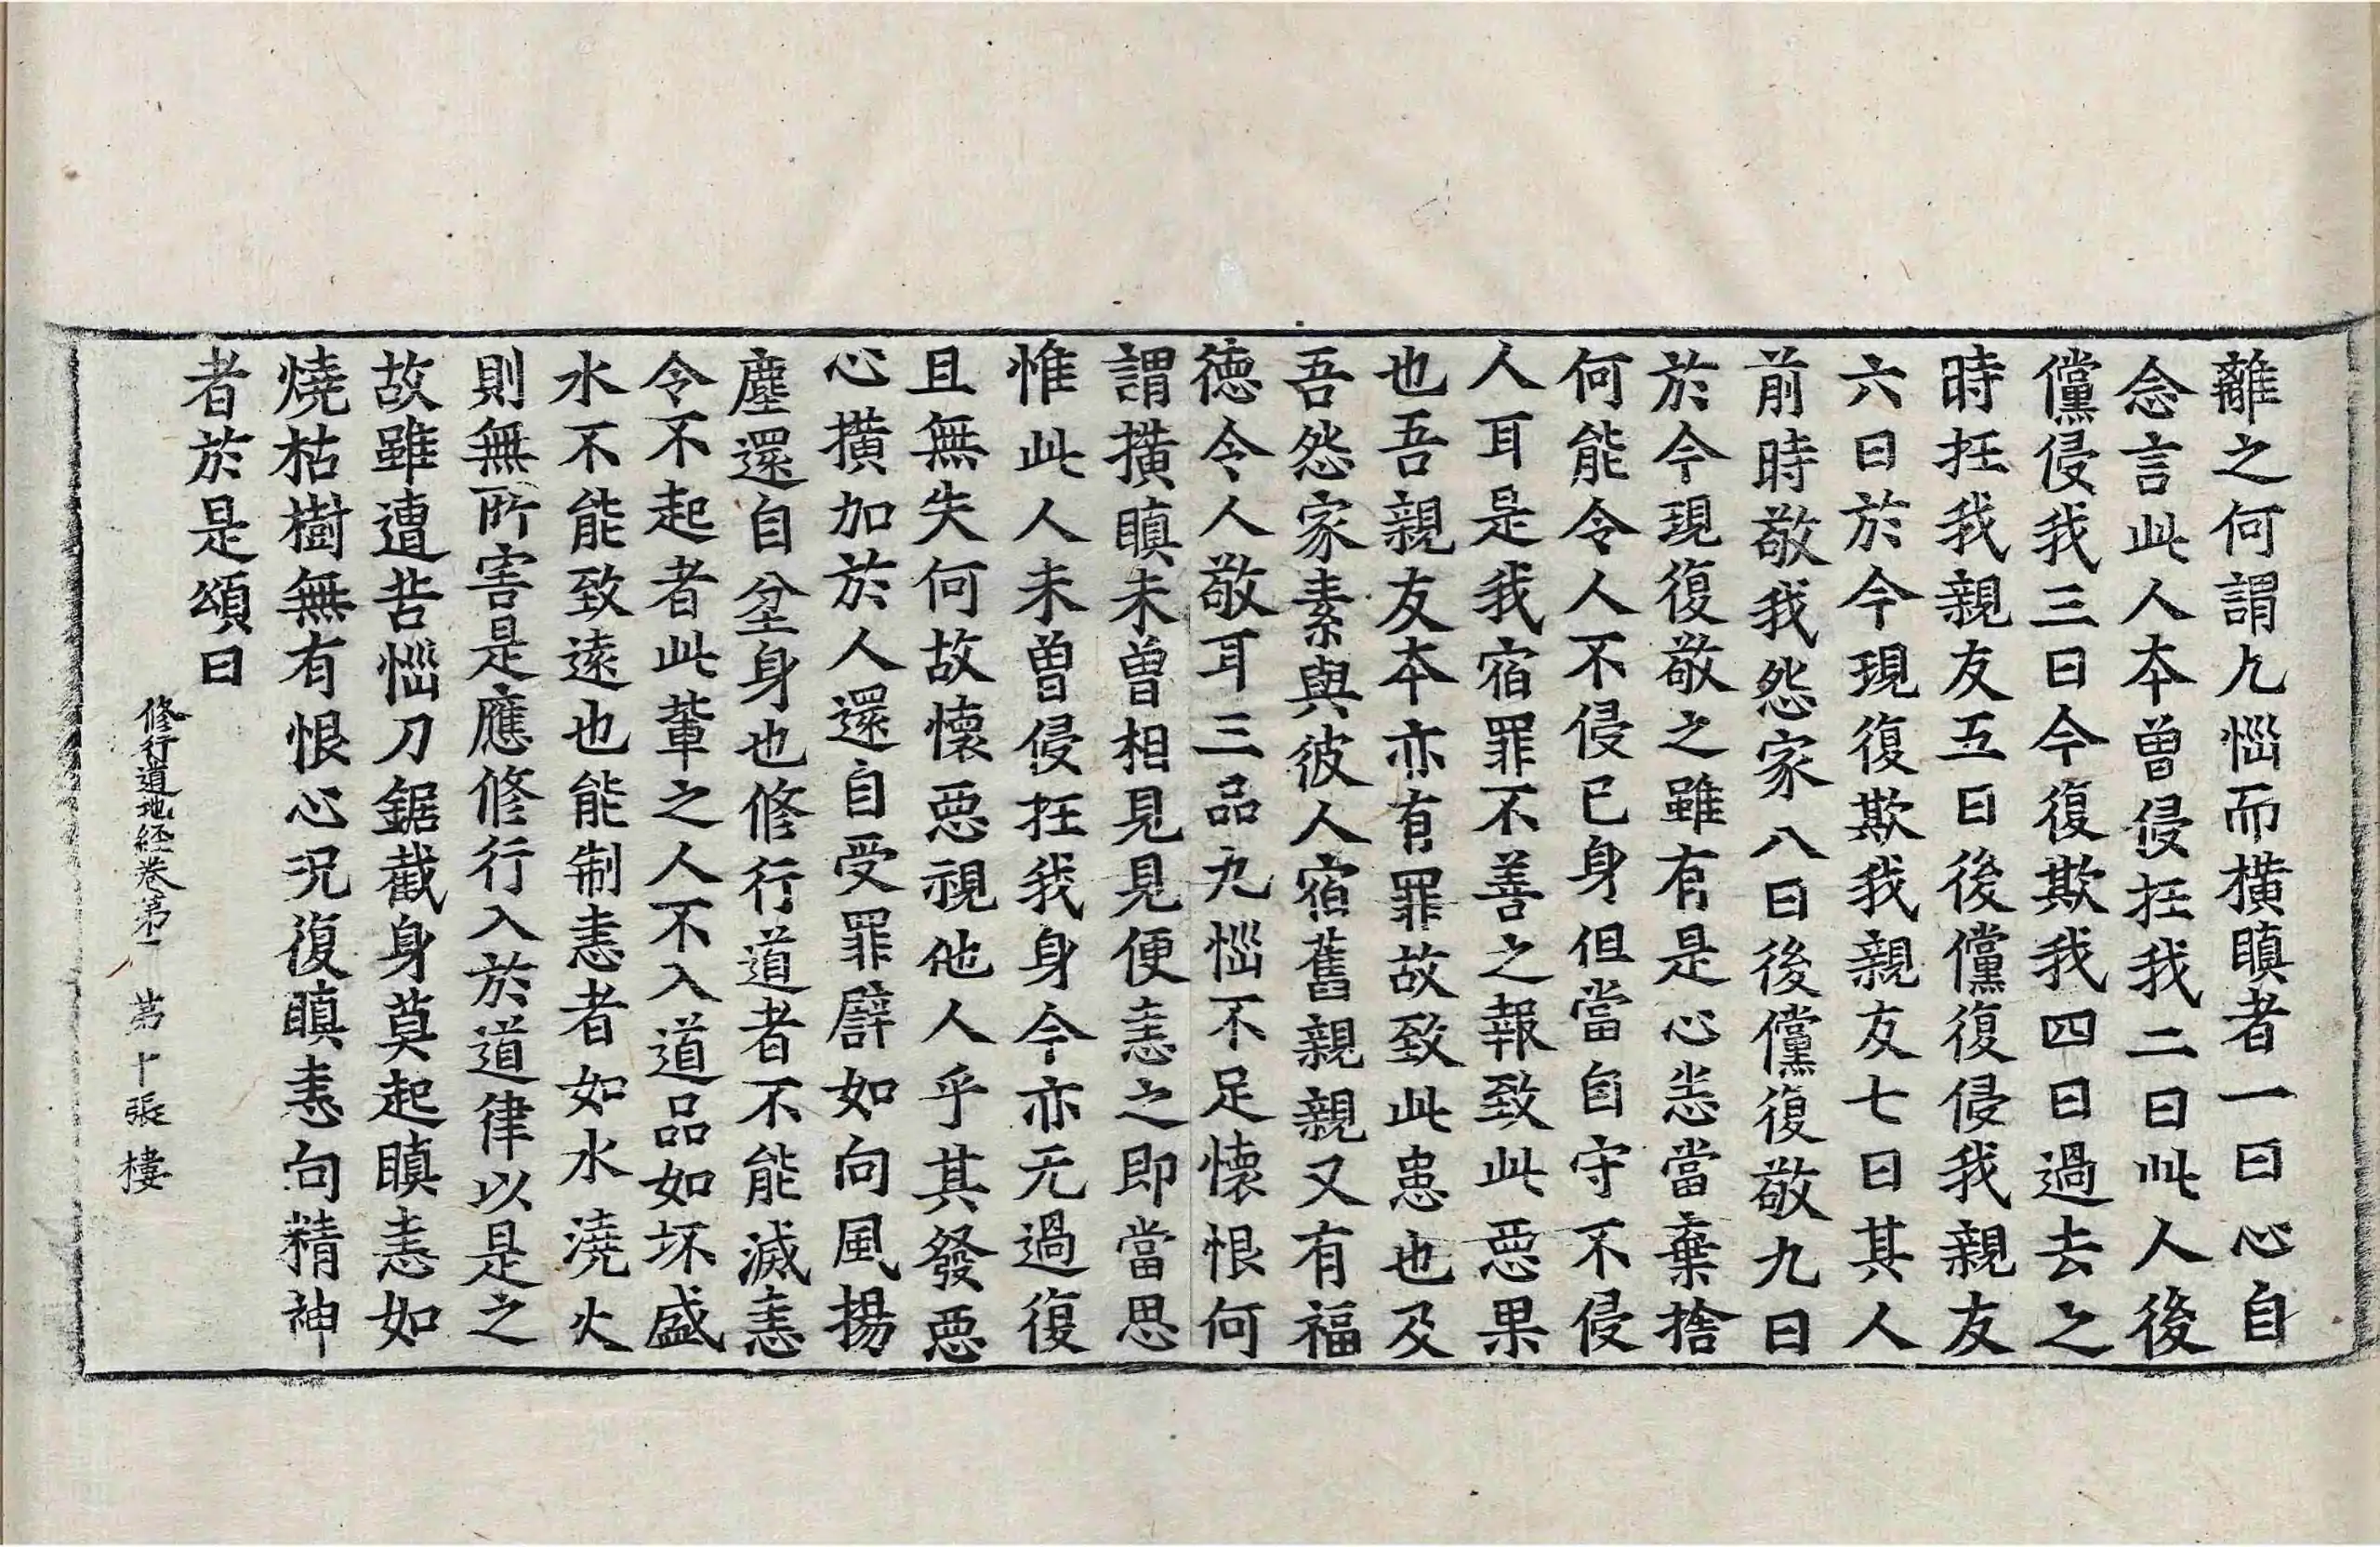 離之何謂九惱而橫瞋者一曰心自
念言此人本曾侵抂我二曰此人後
儻侵我三曰今復欺我四曰過去之
時抂我親友五曰後儻復侵我親友
六曰於今現復欺我親友七曰其人
前時敬我怨家八曰後儻復敬九曰
於今現復敬之雖有是心恙當棄捨
何能令人不侵已身但當自守不侵
人耳是我宿罪不善之報致此惡果
也吾親友本亦有罪故致此患也及
吾怨家素與彼人宿舊親親又有福
德令人敬耳三品九惱不足懷恨何
謂撗瞋未曾相見見便恚之即當思
惟此人未曾侵抂我身今亦无過復
且無失何故懷惡視他人乎其發惡
心撗加於人還自受罪譬如向風揚
塵還自坌身也修行道者不能滅恚
令不起者此輩之人不入道品如坏盛
水不能致遠也能制恚者如水澆火
則無所害是應修行入於道律以是之
故雖遭苦惱刀鋸截身莫起瞋恚如
燒枯樹無有恨心況復瞋恚向精神
者於是頌曰
修行道地經卷第二 第十張 棲